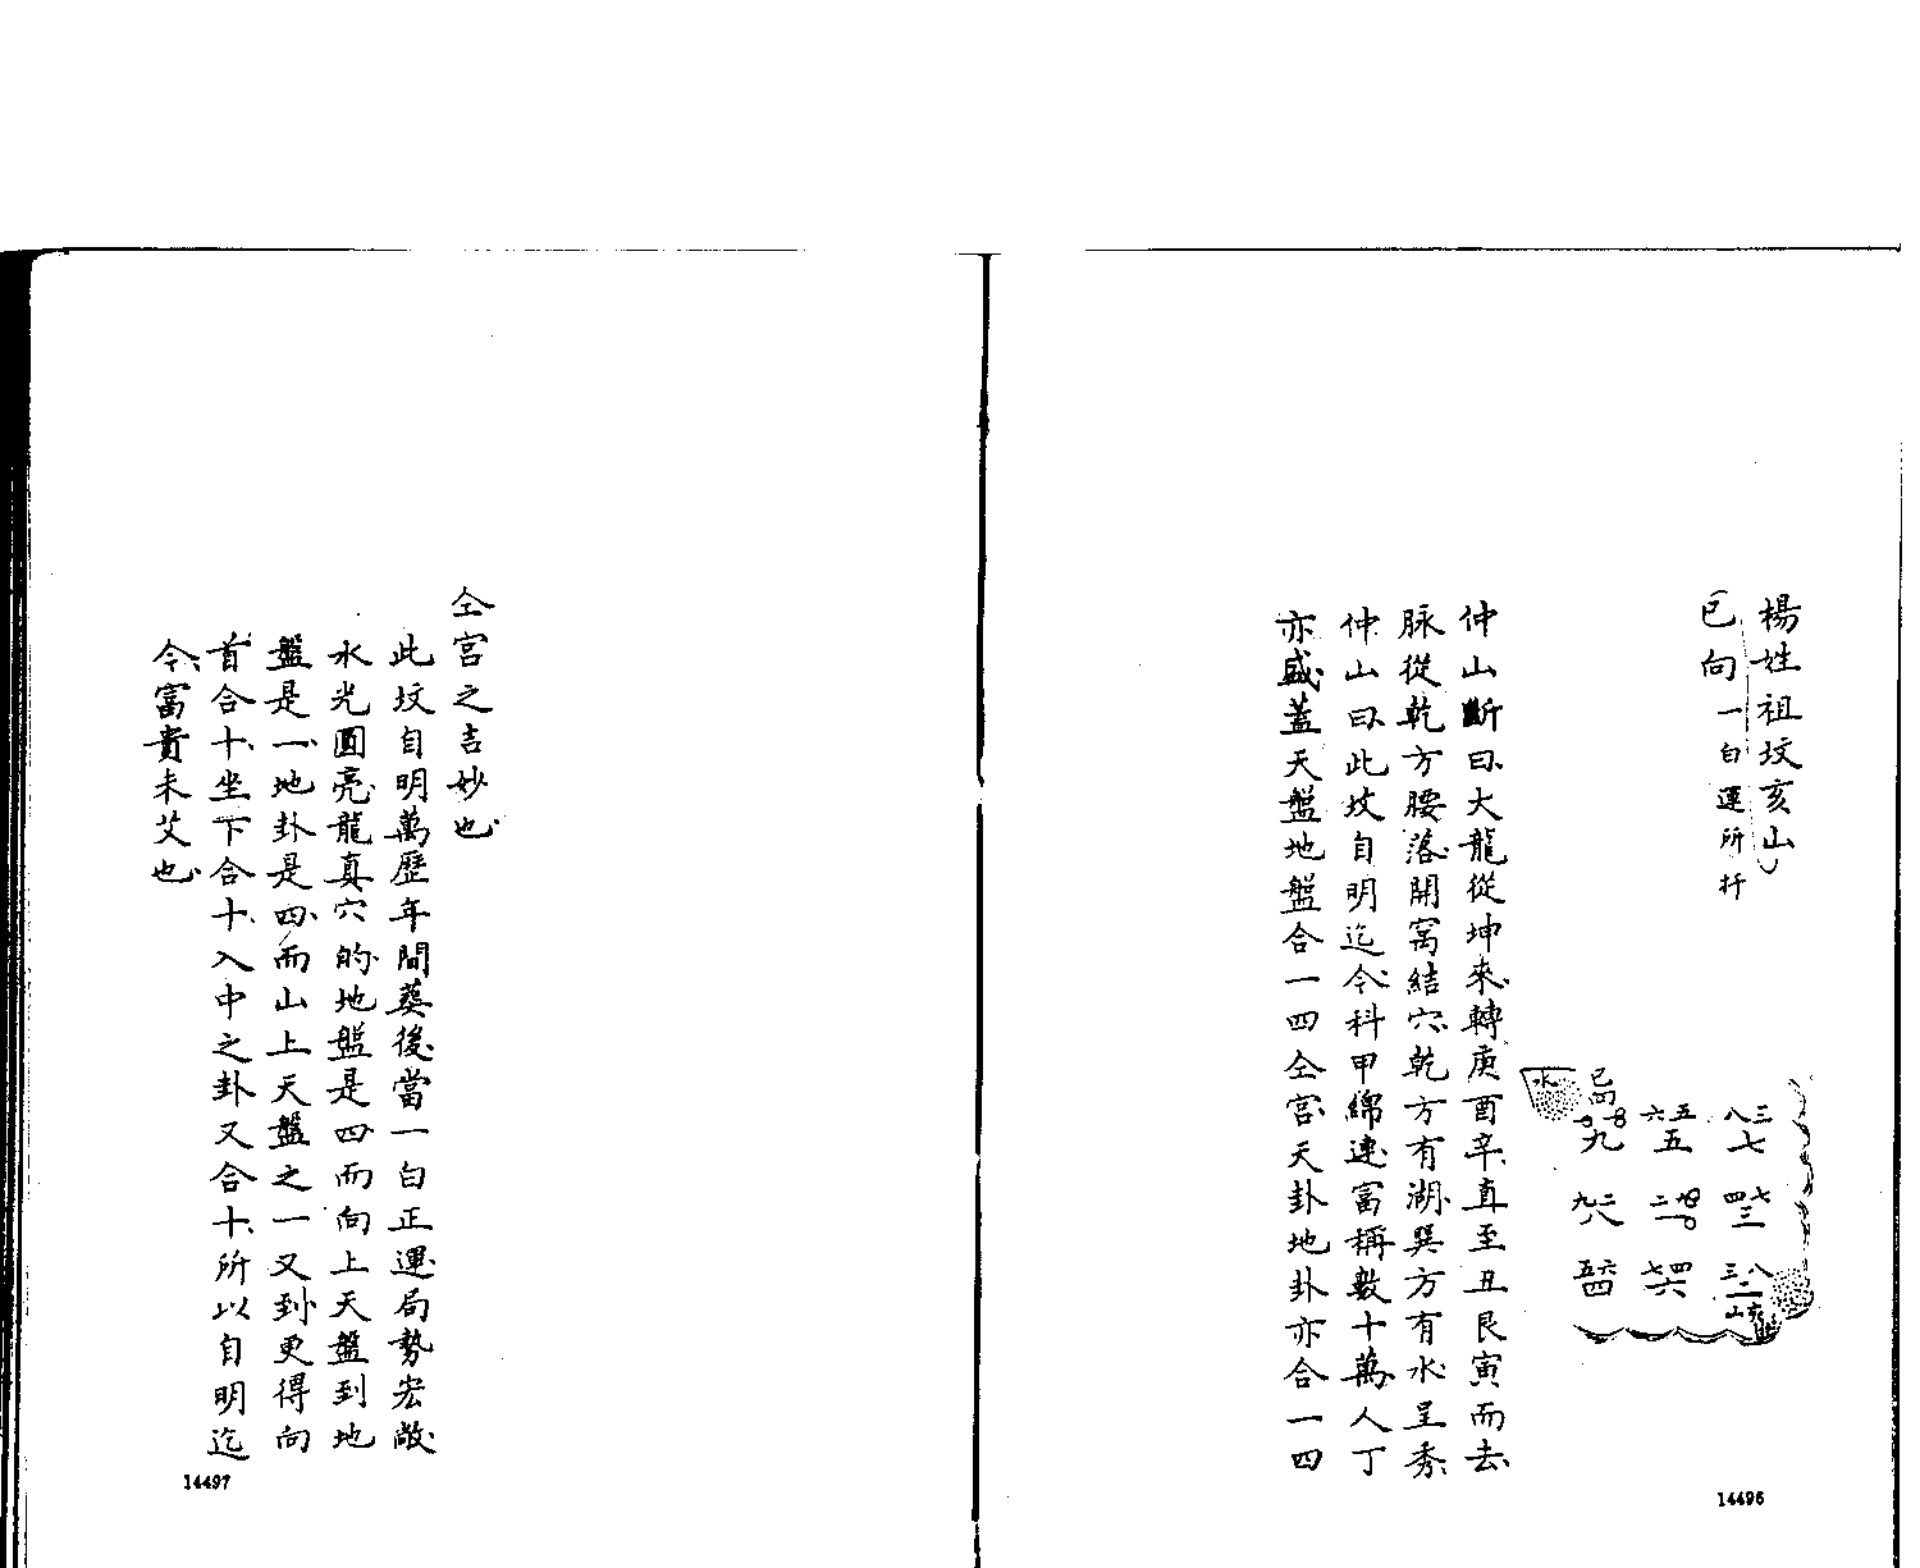 楊姓祖坟亥山
巳向一白運所扦
八三 七
四七 三
三八 二
亥山
六五 五
二九 一
七四 六
巳向
一一 九
九二 八
五六 四
水
仲山斷曰大龍從坤來轉庚酉辛直至丑艮寅而去
脉從乾方腰落開窩結穴乾方有湖巽方有水呈秀
仲山曰此坟自明迄今科甲綿連富稱數十萬人丁
亦盛蓋天盤地盤合一四仝宮天卦地卦亦合一四
14496
仝宮之吉妙也
此坟自明萬歷年間葬後當一白正運局勢宏敞
水光圓亮龍真穴的地盤是四而向上天盤到地
盤是一地卦是四而山上天盤之一又到更得向
首合十坐下合十入中之卦又合十所以自明迄
今富貴未艾也
14497